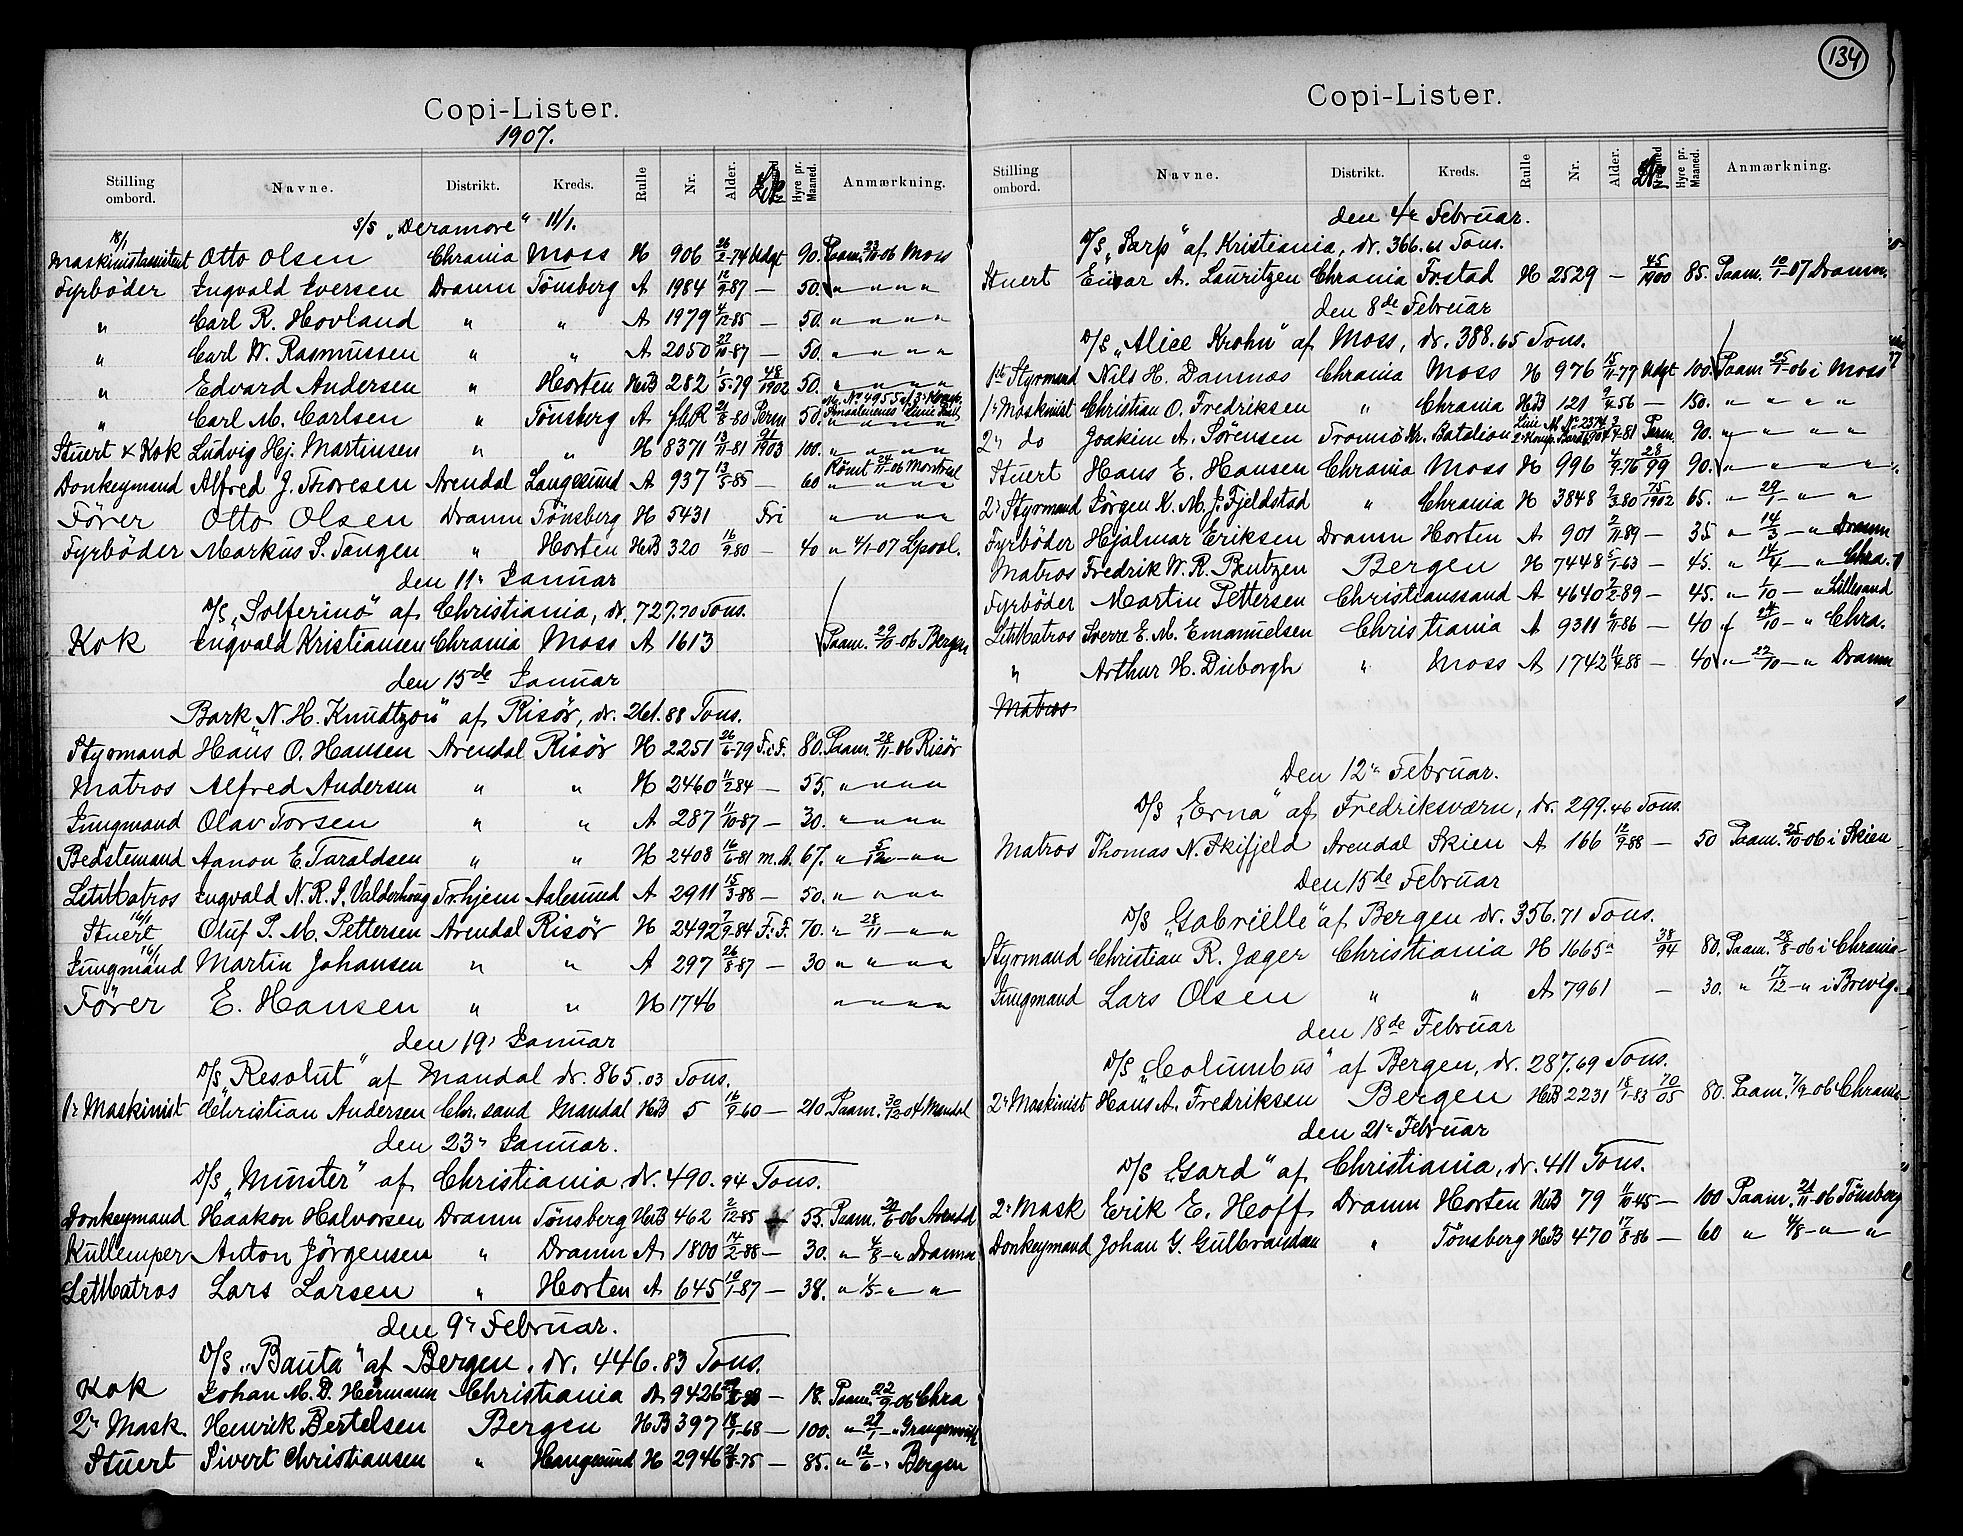 Copi-Lister.
1907.
Stilling ombord. Navne. Distrikt. Kreds. Rulle Nr. Alder. Hyre pr. Maaned. Anmærkning.
S/S „Deramore“ 11/1.
18/1
Maskinistassistent Otto Olsen Chrania Moss H 906 26/2-74 Udgt 90. Paam. 23/10-06 Moss
Fyrböder Ingvald Iversen Dramn Tönsberg A 1984 12/9-87 — 50. " " " "
" Carl R. Hovland " " A 1979 4/12-85 — 50. " " " "
" Carl W. Rasmussen " " A 2050 27/10-87 — 50. " " " "
" Edvard Andersen " Horten HB 282 1/5-79 48/1902 50. " " " "
" Carl M. Carlsen " Tönsberg A 21/8-80 Perm 50. " " " "
Stuert & Kok Ludvig Hj. Martinsen " " H 8371 13/11-81 1903 100. " " " "
Donkeymand Alfred J. Thoresen Arendal Langesund A 937 13/5-85 — 60 " " " "
Förer Otto Olsen Dramn Tönsberg H 5431 Fri " " " "
Fyrböder Markus S. Tangen " Horten HB 320 16/9-80 — 40 " 4/1-07 Lpool.
den 11te Januar
D/S „Solferino“ af Christiania, dr. 727.70 Tons.
Kok Ingvald Kristiansen Chrania Moss A 1613 Paam. 29/10-06 Bergen
den 15de Januar
Bark „N. H. Knudtzon“ af Risör, dr. 261.88 Tons.
Styrmand Hans O. Hansen Arendal Risör H 2251 26/6-79 F.F. 80. Paam. 28/11-06 Risör
Matros Alfred Andersen " " H 2460 11/2-84 — 55. " " " "
Jungmand Olav Torsen " " A 287 11/10-87 — 30. " " " "
Bedstemand Aanon E Taraldsen " " H 2408 16/6-81 m.A. 67. " 5/12 — " "
LetMatros Ingvald N. R. I. Valderhaug Tr.hjem Aalesund A 2911 15/3-88 — 50. " " " "
16/1
Stuert Oluf P. M. Pettersen Arendal Risör H 2492 7/9-84 F.F. 70. " 28/11 — " "
16/1
Jungmand Martin Johansen " " A 297 26/8-87 — 30 " " " "
Förer E. Hansen " " H 1746 " " " "
den 19de Januar
D/S „Resolut“ af Mandal dr. 865.03 Tons.
1ste Maskinist Christian Andersen Chr.sand Mandal HB 5 16/9-60 — 210 Paam. 30/12-04 Mandal
den 23de Januar.
D/S „Munster“ af Christiania dr. 490.94 Tons.
Donkeymand Haakon Halvorsen Dramn Tönsberg HB 462 2/12-85 55. Paam. -06 Arendal
Kullemper Anton Jörgensen " Dramn A 1800 14/2-88 — 30. " 4/8 — " Dramn
LetMatros Lars Larsen " Horten A 645 10/1-87 — 38. " 4/5 — " "
den 9de Februar.
D/S „Bauta“ af Bergen, dr. 446.83 Tons.
Kok Johan M. D. Hermann Christiania A 9426 — 18. Paam. 22/9-06 Chra
2den Mask Henrik Bertelsen Bergen HB 397 18/1-68 — 100. "
Stuert Sivert Christiansen " Haugesund H 2946 21/8-75 — 85. " 12/6 — " Bergen
134
Copi-Lister.
Stilling ombord. Navne. Distrikt. Kreds. Rulle Nr. Alder. Hyre pr. Maaned. Anmærkning.
den 4de Februar.
D/S „Sarp“ af Kristiania, dr. 366.61 Tons.
Stuert Einar A. Lauritzen Chrania Fr.stad H 2529 — 45/1900 85. Paam. 10/1-07 Dramn.
den 8de Februar
D/S „Alice Krohn“ af Moss, dr. 388.65 Tons.
1ste Styrmand Nils H. Damnæs Chrania Moss H 976 15/11-77 Udgt 100. Paam. 25/1-06 i Moss
1ste Maskinist Christian O. Fredriksen " Chrania HB 121 9/4-56 — 150. " " " "
2den do Joakim A. Sörensen Tromsö Kr. Batalion 4-81 Perm. 90. " " " "
Stuert Hans E. Hansen Chrania Moss H 996 4/9-76 28/99 90. " " " "
2den Styrmand Jörgen K. M. J. Fjeldstad " Chrania H 3848 9/3-80 75/1902 65. " 29/1 — " "
Fyrböder Hjalmar Eriksen Dramn Horten A 901 2/11-89 — 35 " 14/3 — " Dramn
Matros Fredrik W. R. Bentzen Bergen H 7448 5/1-63 — 45. " 14/4 — " Chra.
Fyrböder Martin Pettersen Christianssand A 4640 7/2-89 — 45. " 1/10 — " Lillesand
LetMatros Sverre E. M. Emanuelsen Christiania A 9311 6/11-86 — 40 " 24/10 — " Chra.
" Arthur H. Duborgh " Moss A 1742 11/4-88 — 40 " 22/10 — " Dramn
Matros
Den 12te Februar.
D/S „Erna“ af Fredriksværn, dr. 299.46 Tons.
Matros Thomas N. Skifjeld Arendal Skien A 166 12/9-88 — 50 Paam. 25/10-06 i Skien
Den 15de Februar
D/S „Gabrielle“ af Bergen dr. 356.71 Tons.
Styrmand Christian R. Jæger Christiania H 1665a 38/94 80. Paam. 28/8-06 i Chrania
Jungmand Lars Olsen " " A 7961 — 30. " 17/12 — " i Brevig.
den 18de Februar
D/S „Columbus“ af Bergen, dr. 287.69 Tons.
2den Maskinist Hans A. Fredriksen Bergen HB 2231 18/1-83 70/05 80. Paam. 7/9-06 Chrania
den 21de Februar
D/S „Gard“ af Christiania, dr. 411 Tons.
2den Mask Erik E. Hoff Dramn Horten HB 79 11/10-45 — 100 Paam. 21/11-06 Tönsberg
Donkeymand Johan G. Gulbrandsen " Tönsberg HB 470 17/8-86 — 60 " 4/8 — " "